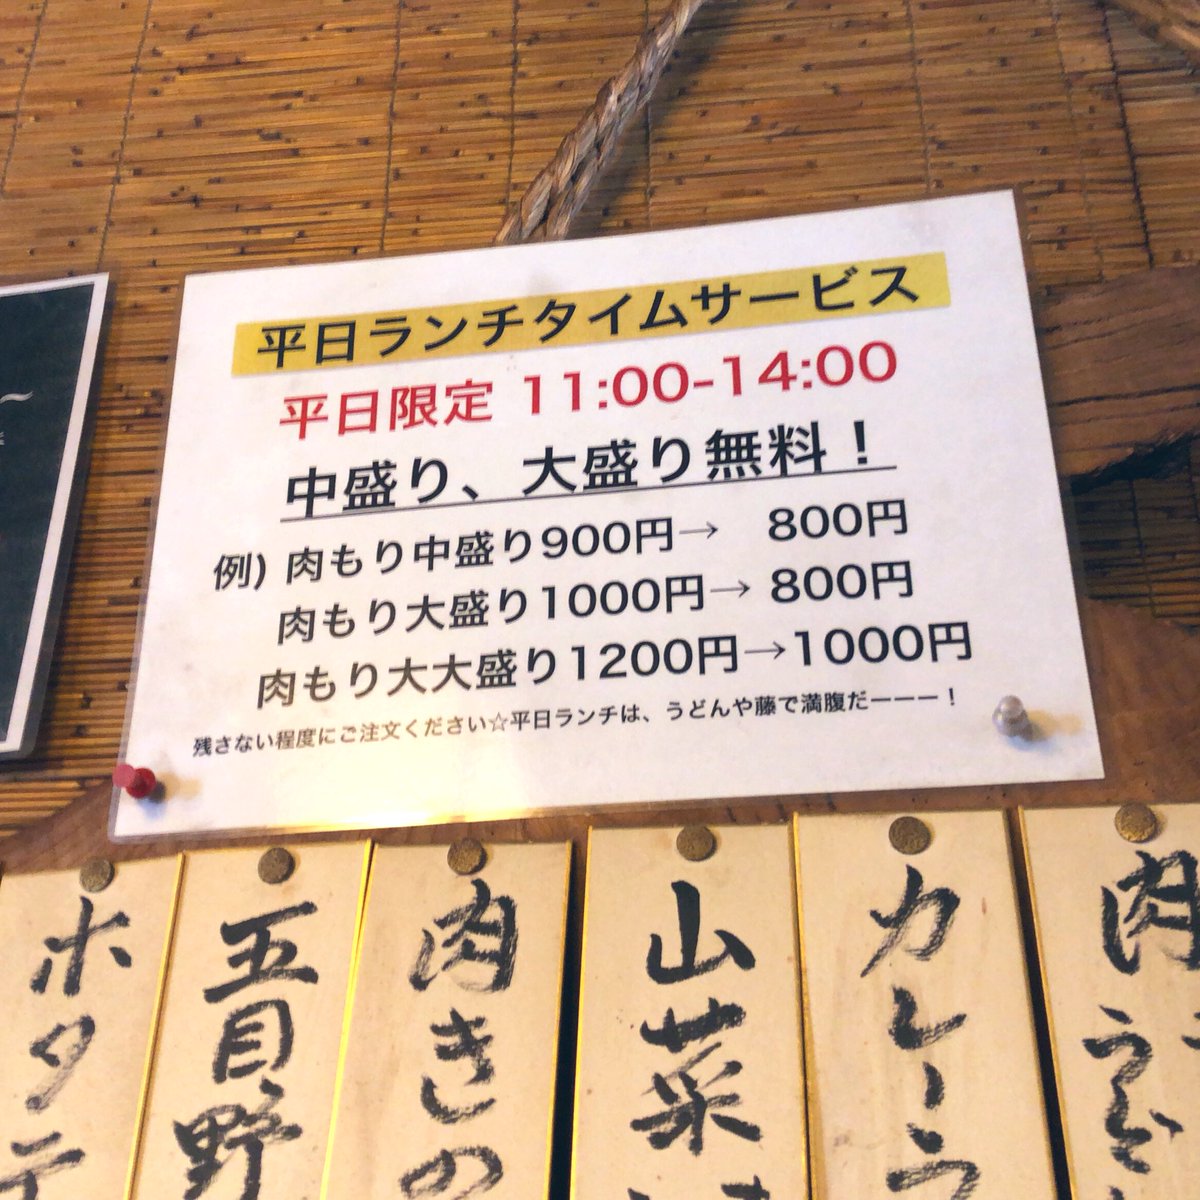 平日ランチタイムサービス
平日限定 11:00-14:00
中盛り、大盛り無料！
例) 肉もり中盛り900円→ 800円
肉もり大盛り1000円→ 800円
肉もり大大盛り1200円→1000円
残さない程度にご注文ください☆平日ランチは、うどんや藤で満腹だーーー！
ホタテ
五目野
肉きの
山菜
カレーう
肉うど